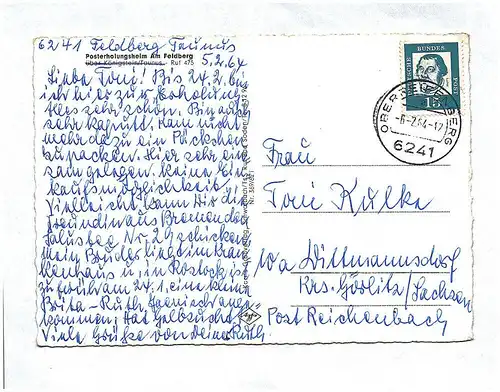 6241 Feldberg Taunus
Posterholungsheim Am Feldberg
5.2.64
über Königstein/Taunus - Ruf 475
Liebe Toni! Bis 24.2. bin
ich hier zur Erholung.
Alles sehr schön. Bin auch
sehr kaputt. Kam nicht
mehr dazu ein Päckchen
zu packen. Hier sehr ein-
sam gelegen. keine Ein-
kaufsmöglichkeit.
Vielleicht kann Dir die
Freundin aus Bremen den
Nr. 29 schicken.
Mein Bruder liegt im Kran-
kenhaus u. in Rostock ist
zu früh am 24.1. eine kleine
Brita-Ruth
kommen. Hat Gelbsucht.
Viele Grüße von Deiner Ruth
DEUTSCHE BUNDESPOST
15
OBERREIFENBERG
-6-2.64-17
6241
Frau
Toni Kulke
10a Dittmannsdorf
Krs. Görlitz/Sachsen
Post Reichenbach